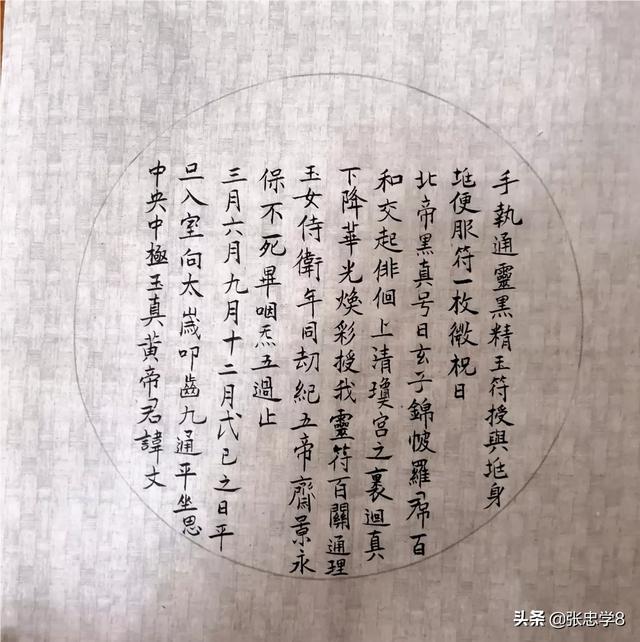 手執通靈黑精玉符授與㘴身
㘴便服符一枚微祝曰
北帝黑真号曰玄子錦帔羅帬百
和交起俳佪上清瓊宮之裏迴真
下降華光煥彩授我靈符百關通理
玉女侍衛年同劫紀五帝齊景永
保不死畢咽炁五過止
三月六月九月十二月戊己之日平
旦入室向太嵗叩齒九通平坐思
中央中極玉真黃帝君諱文
头条 @张忠学8